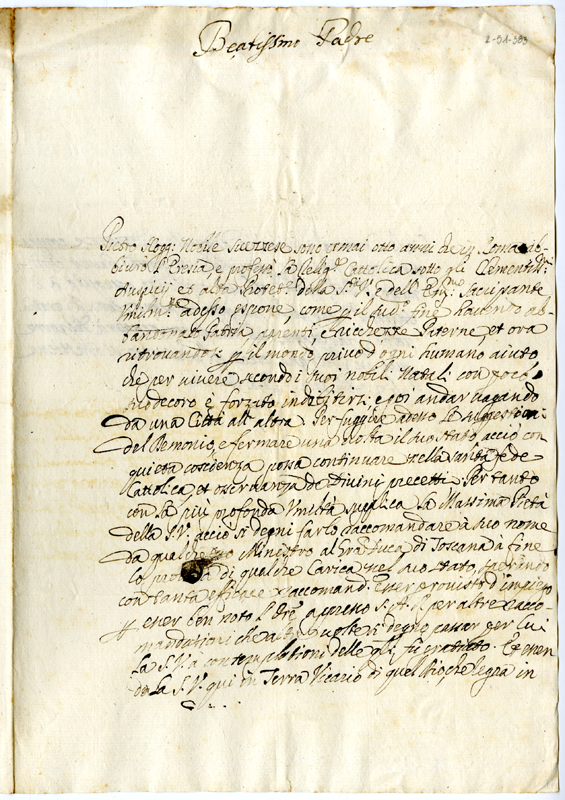 Beatissimo Padre
2-31-383
Pietro Hogg: Nobile Scozzese sono ormai otto anni che in Roma ab-
biurò l'Eresia e professò la Relig.e Cattolica sotto gli Clementiss.i
Auspicij et alta Protet.e della S.tà V.a e dell' Em.mo Sacripante
adesso espone come p il sud.o fine havendo ab-
bandonato Patria, parenti, e ricchezze Paterne, et ora
ritrovandosi p il mondo privo d'ogni humano aiuto
che per vivere secondo i suoi nobili Natali con poco
suo decoro è forzato e poi andar vagando
da una Città all' altra. Per fuggire adesso le suggestioni
del Demonio, e fermare una volta il suo stato, acciò con
quieta coscienza possa continuare nella santa fede
Cattolica, et osservanza de Divini precetti. Per tanto
con la più profonda Umiltà supplica la Massima Pietà
della S.V. acciò si degni farlo raccomandare à suo nome
da qualche suo Ministro al Gran Duca di Toscana à fine
lo di qualche Carica nel suo stato, sperando
con tanta efficace raccomand. esser provisto d'impiego
esser ben noto appresso S.A. per altre racco-
mandationi che altre volte si degnò passar per lui
la S.V. a contemplatione delle q.li fu graduato. Et essen
do la S.V. qui in Terra Vicario di quel Dio, che regna in